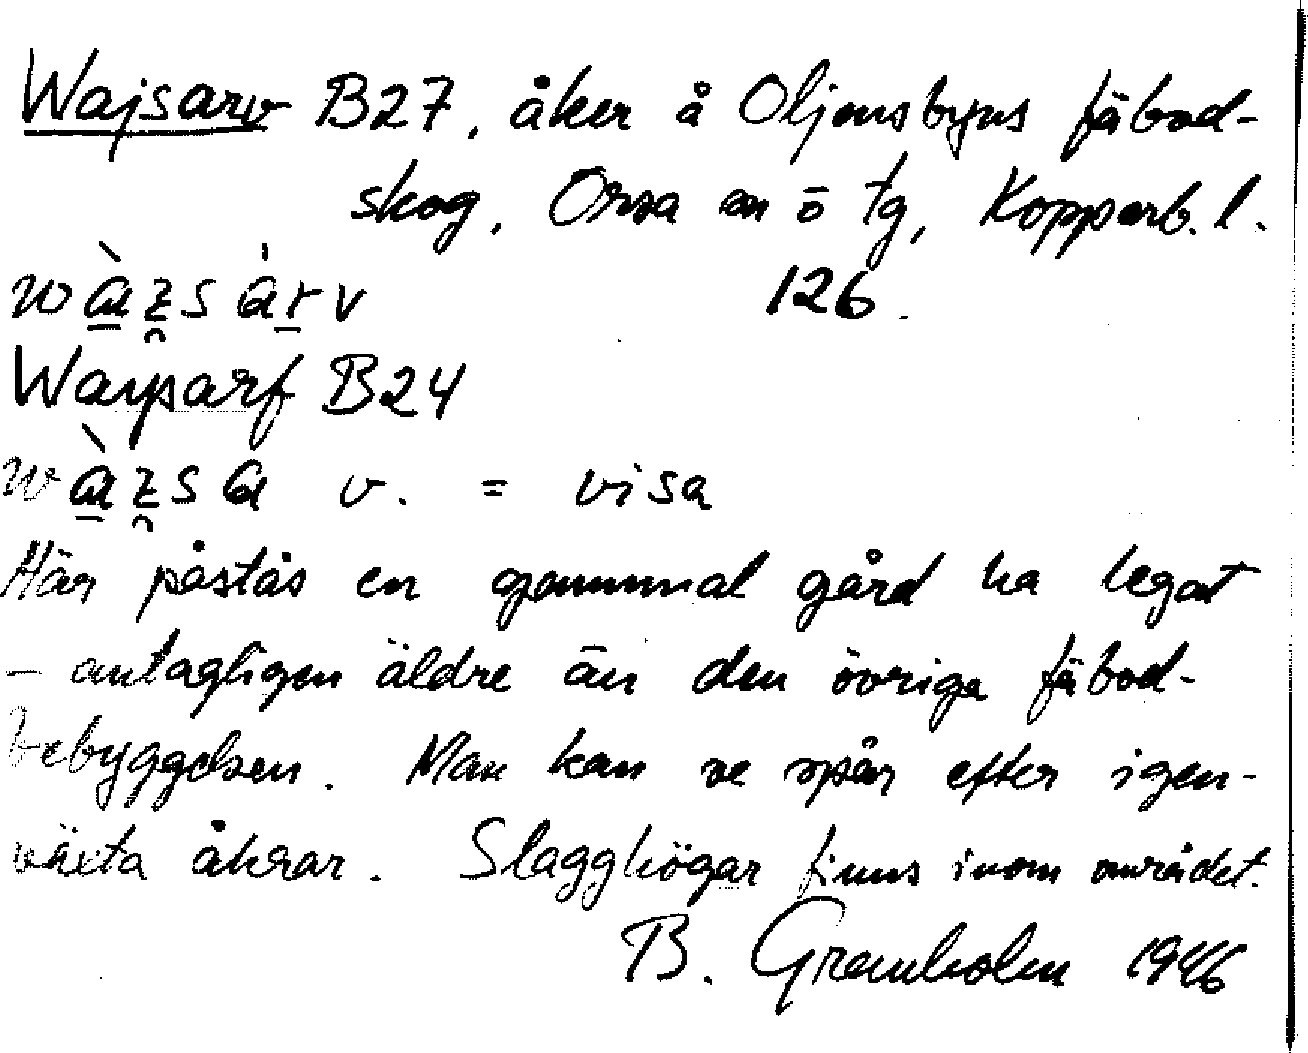 Wajsarv B27, åker å Oljonsbyns fäbod-
skog, Orsa sn ö tg, Kopparb. l.
126.
Waysarf B24
v. = visa
Här påstås en gammal gård ha legat
– antagligen äldre än den övriga fäbod-
bebyggelsen. Man kan se spår efter igen-
växta åkrar. Slagghögar finns inom området.
B. Granholm 1946